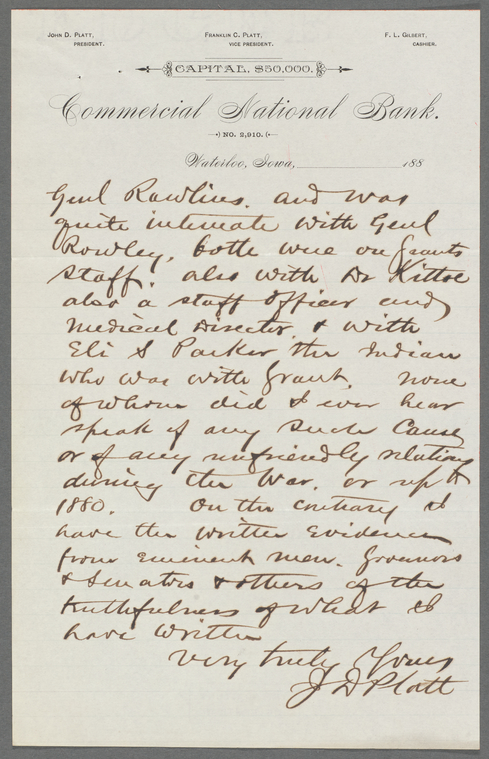 JOHN D. PLATT, PRESIDENT.
FRANKLIN C. PLATT, VICE PRESIDENT.
F. L. GILBERT, CASHIER.
CAPITAL, $50,000.
Commercial National Bank.
NO. 2,910.
Waterloo, Iowa, 188
Genl Rawlins. and was
quite intimate with Genl
Rowley, both were on Grants
Staff. also with Dr Kittoe
also a staff officer and
Medical Director. & with
Eli S Parker the Indian
who was with Grant. none
of whom did I ever hear
speak of any such Cause
or of any unfriendly relations
during the War. or up to
1880. On the contrary I
have the written Evidence
from eminent men. Governors
& Senators & others of the
truthfulness of what I
have written
Very truly Yours
J D Platt